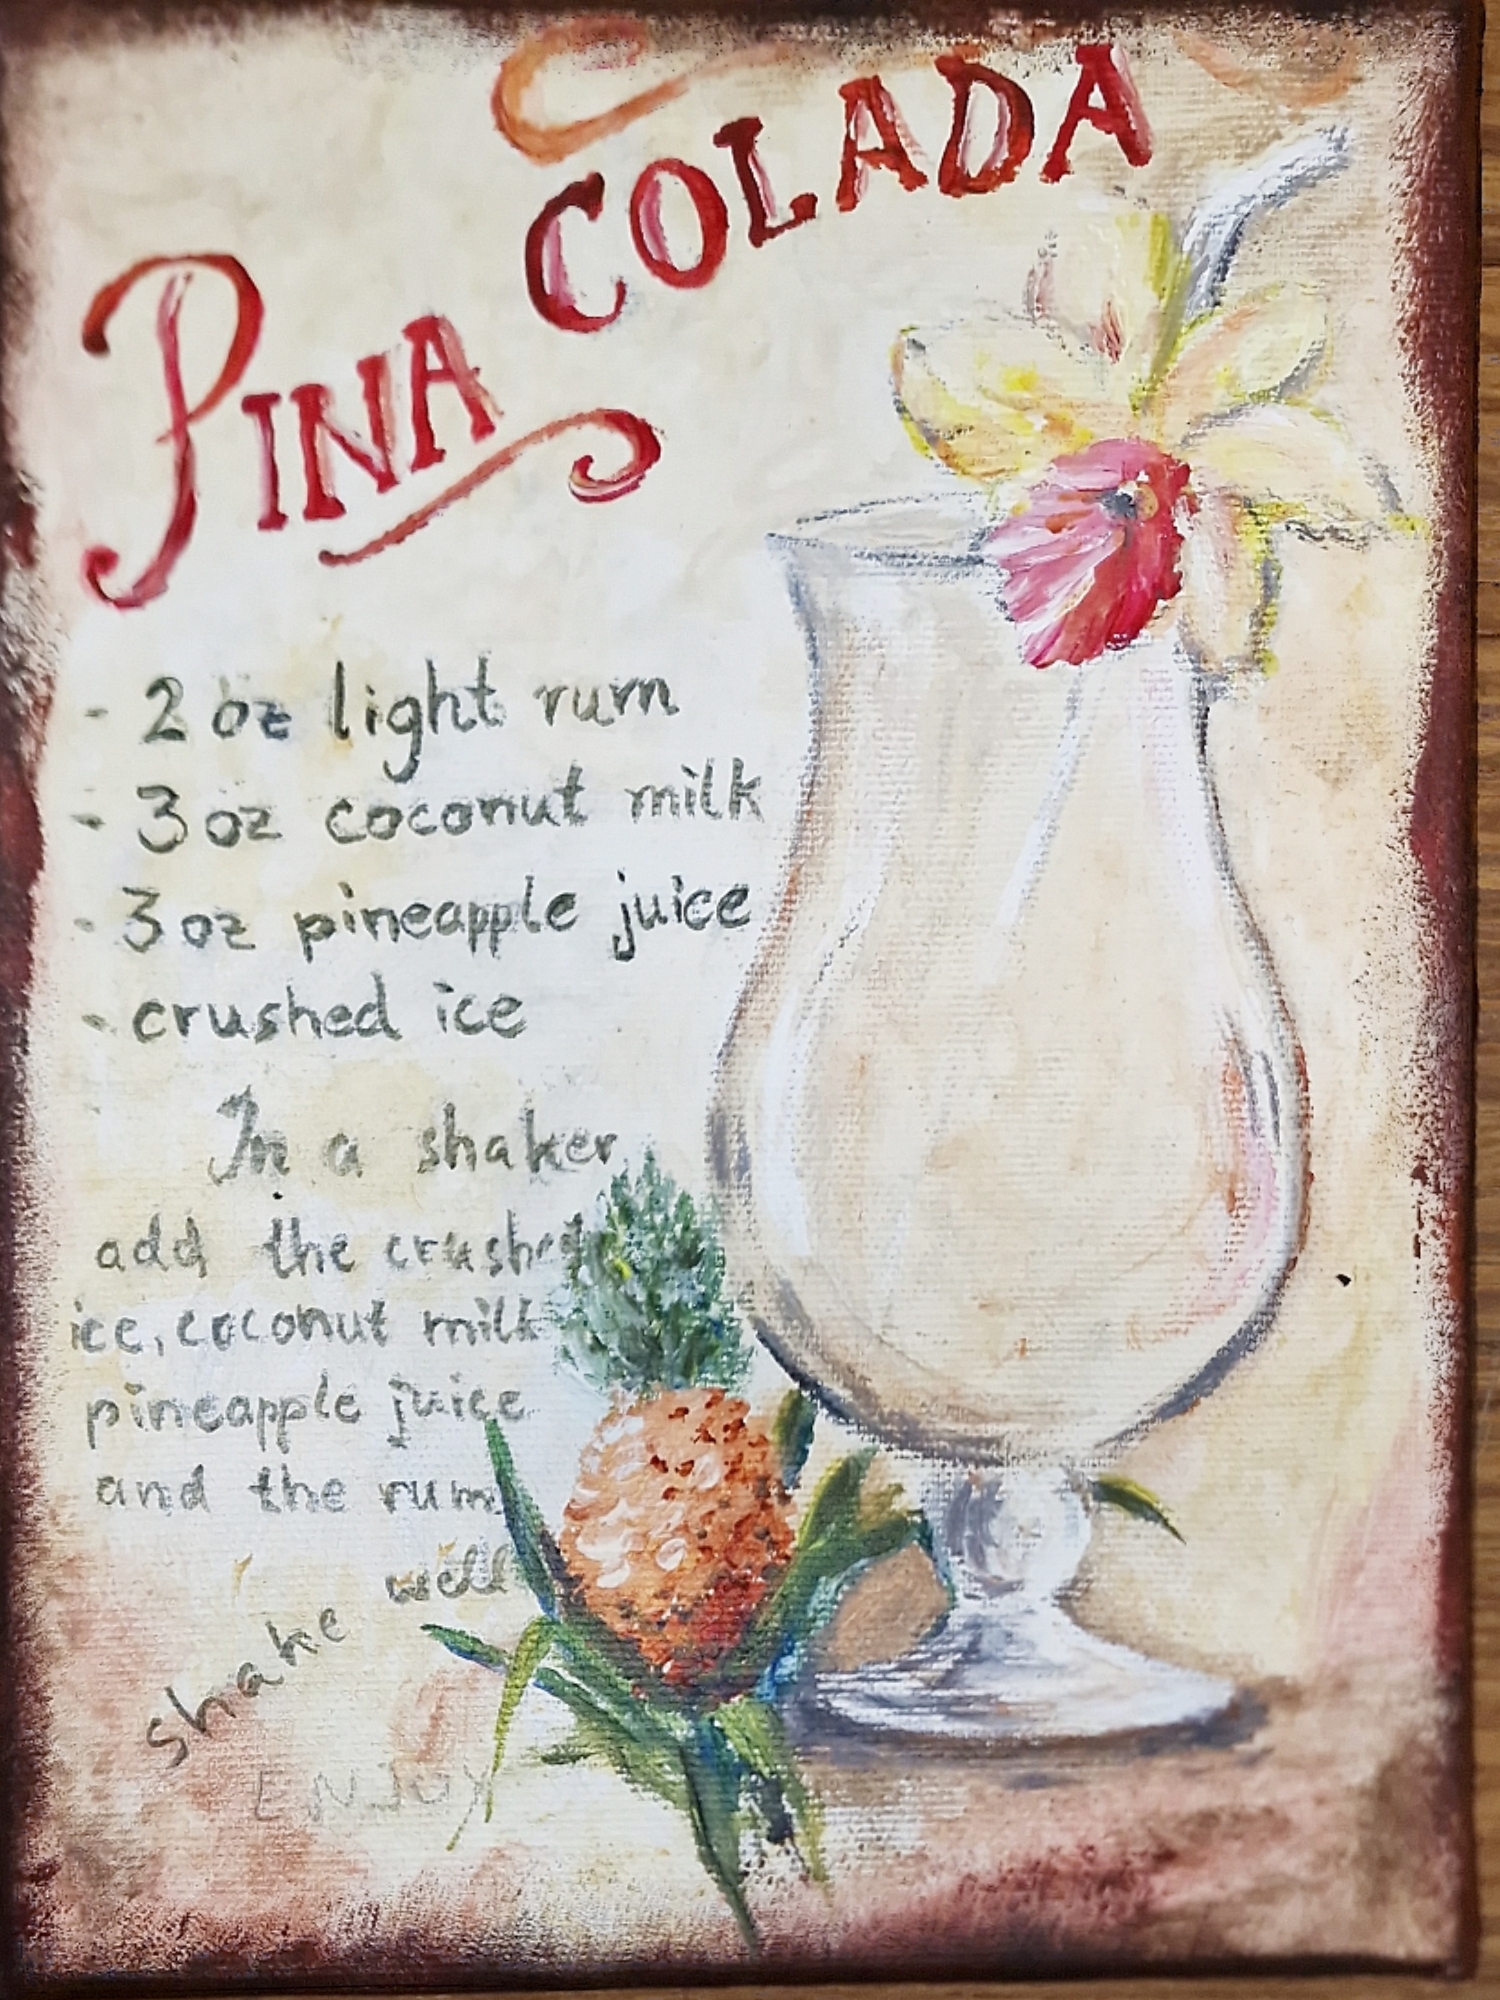 PINA COLADA
- 2 oz light rum
- 3 oz coconut milk
- 3 oz pineapple juice
- crushed ice
In a shaker
add the crushed
ice, coconut milk
pineapple juice
and the rum
shake well
ENJOY